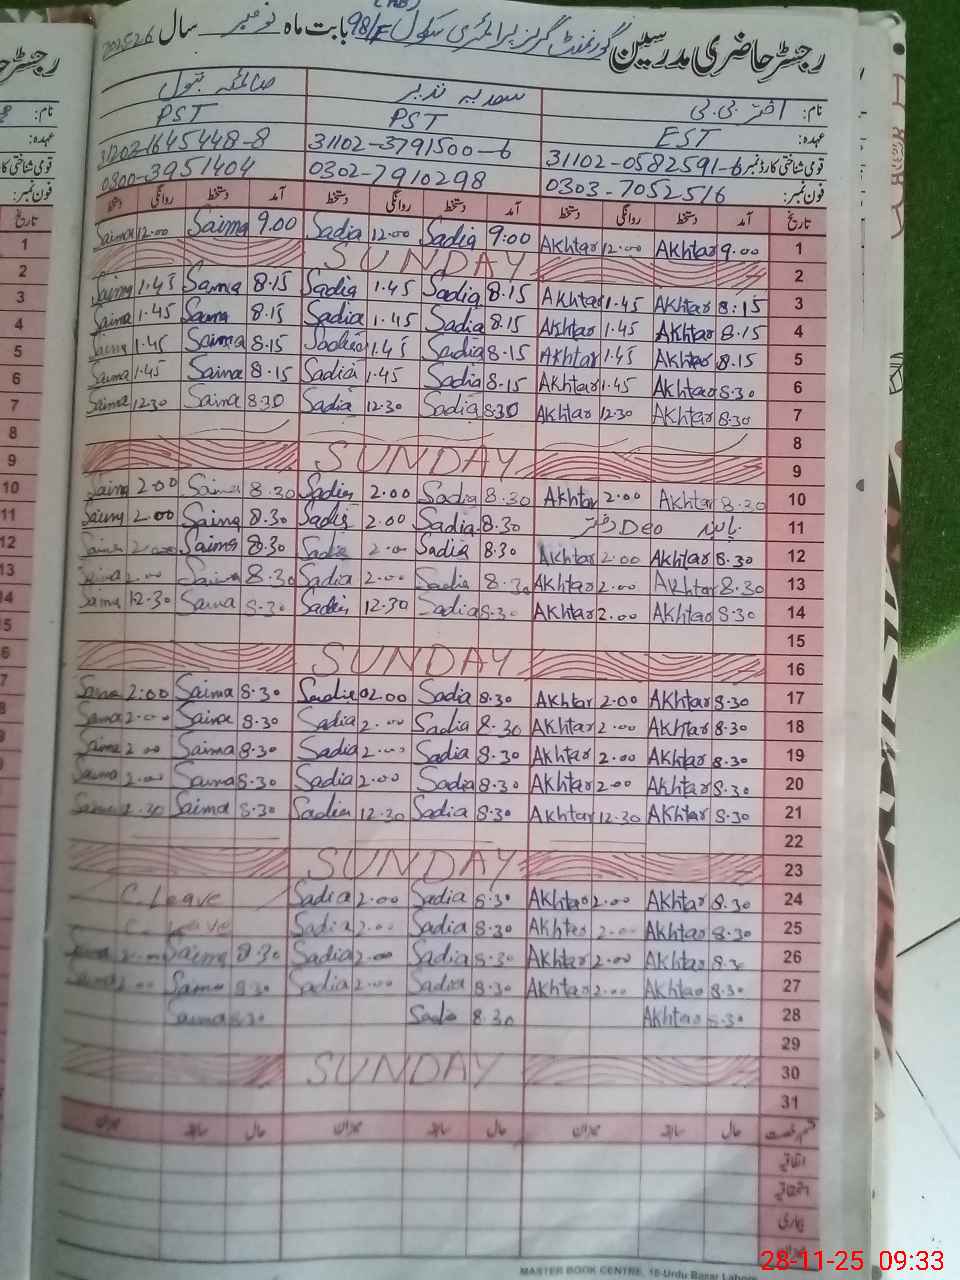 رجسٹر حاضری مدرسین گورنمنٹ گرلز پرائمری سکول 98/F بابت ماہ نومبر سال 2025-26
نام: اختر بی بی سعدیہ نذیر صائمہ بتول
عہدہ: EST PST PST
قومی شناختی کارڈ نمبر: 31102-0582591-6 31102-3791500-6 31202-1645448-8
فون نمبر: 0303-7052516 0302-7910298 0300-3951404
تاریخ آمد دستخط روانگی دستخط آمد دستخط روانگی دستخط آمد دستخط روانگی دستخط
1 9.00 Akhtar 12.00 Akhtar 9:00 Sadia 12.00 Sadia 9.00 Saima 12.00 Saima
2 SUNDAY
3 8:15 Akhtar 1.45 Akhtar 8.15 Sadia 1.45 Sadia 8.15 Saima 1.45 Saima
4 8.15 Akhtar 1.45 Akhtar 8.15 Sadia 1.45 Sadia 8.15 Saima 1.45 Saima
5 8.15 Akhtar 1.45 Akhtar 8.15 Sadia 1.45 Sadia 8.15 Saima 1.45 Saima
6 8.30 Akhtar 1.45 Akhtar 8.15 Sadia 1.45 Sadia 8.15 Saima 1.45 Saima
7 8.30 Akhtar 12.30 Akhtar 8.30 Sadia 12.30 Sadia 8.30 Saima 12.30 Saima
8
9 SUNDAY
10 8.30 Akhtar 2.00 Akhtar 8.30 Sadia 2.00 Sadia 8.30 Saima 2.00 Saima
11 Deo دفتر 8.30 Sadia 2.00 Sadia 8.30 Saima 2.00 Saima
12 8.30 Akhtar 2.00 Akhtar 8.30 Sadia 2.00 Sadia 8.30 Saima 2.00 Saima
13 8.30 Akhtar 2.00 Akhtar 8.30 Sadia 2.00 Sadia 8.30 Saima 2.00 Saima
14 8.30 Akhtar 2.00 Akhtar 8.30 Sadia 12.30 Sadia 8.30 Saima 12.30 Saima
15
16 SUNDAY
17 8.30 Akhtar 2.00 Akhtar 8.30 Sadia 02.00 Sadia 8.30 Saima 2:00 Saima
18 8.30 Akhtar 2.00 Akhtar 8.30 Sadia 2.00 Sadia 8.30 Saima 2.00 Saima
19 8.30 Akhtar 2.00 Akhtar 8.30 Sadia 2.00 Sadia 8.30 Saima 2.00 Saima
20 8.30 Akhtar 2.00 Akhtar 8.30 Sadia 2.00 Sadia 8.30 Saima 2.00 Saima
21 8.30 Akhtar 12.30 Akhtar 8.30 Sadia 12.30 Sadia 8.30 Saima Saima
22
23 SUNDAY
24 8.30 Akhtar 2.00 Akhtar 8.30 Sadia 2.00 Sadia C.Leave
25 8.30 Akhtar 2.00 Akhtar 8.30 Sadia 2.00 Sadia C. Leave
26 8.30 Akhtar 2.00 Akhtar 8.30 Sadia 2.00 Sadia 8.30 Saima 2.00 Saima
27 8.30 Akhtar 2.00 Akhtar 8.30 Sadia 2.00 Sadia 8.30 Saima 2.00 Saima
28 8.30 Akhtar 8.30 Sadia 8.30 Saima
29
30 SUNDAY
31
قسم رخصت حال سابقہ میزان حال سابقہ میزان حال سابقہ میزان
اتفاقیہ
استحقاقیہ
بیماری
MASTER BOOK CENTRE, 16-Urdu Bazar Lahore
28-11-25 09:33